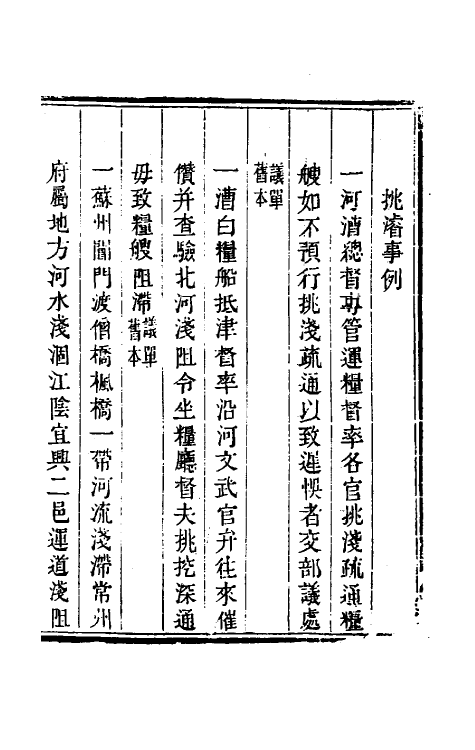 挑濬事例
一河漕總督專管運糧督率各官挑淺疏通糧
艘如不預行挑淺疏通以致遲悞者交部議處
議單
舊本
一漕白糧船抵津督率沿河文武官弁往來催
儹并查驗北河淺阻令坐糧廳督夫挑挖深通
毋致糧艘阻滯議單舊本
一蘇州閶門渡僧橋楓橋一帶河流淺滯常州
府屬地方河水淺涸江陰宜興二邑運道淺阻